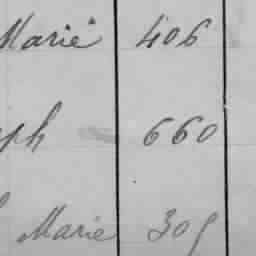 Marie 406
ph 660
Marie 305